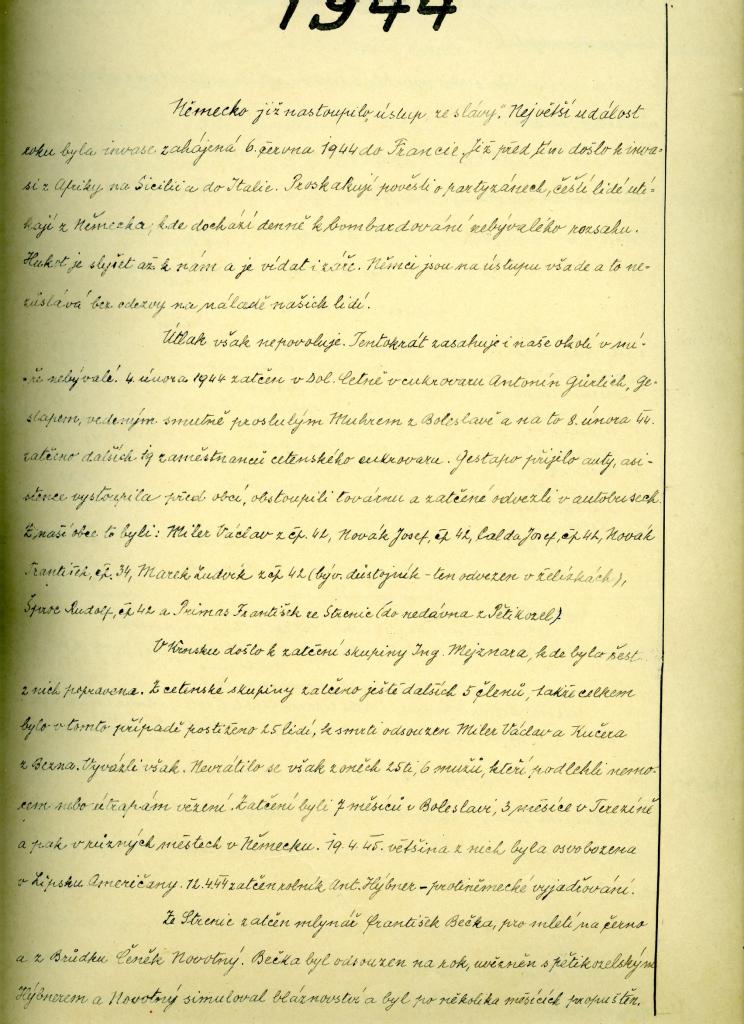 1944
Německo již nastoupilo „ústup ze slávy". Největší událost
roku byla invase zahájená 6. června 1944 do Francie. Již před tím došlo k inva-
si z Afriky na Sicilii a do Italie. Proskakují pověsti o partyzánech, čeští lidé utí-
kají z Německa, kde dochází denně k bombardování nebývalého rozsahu.
Hukot je slyšet až k nám a je vídat i záře. Němci jsou na ústupu všade a to ne-
zůstává bez odezvy na náladě našich lidí.
Útlak však nepovoluje. Tentokrát zasahuje i naše okolí v mí-
ře nebývalé. 4. února 1944 zatčen v Dol. Cetně v cukrovaru Antonín Gürlich, Ge-
stapem, vedeným smutně proslulým Muhrem z Boleslavě a na to 8. února 44.
zatčeno dalších 19 zaměstnanců cetenského cukrovaru. Gestapo přijelo auty, asi-
stence vystoupila před obcí, obstoupili továrnu a zatčené odvezli v autobusech.
Z naší obce to byli: Miler Václav z čp. 42, Novák Josef, čp 42, Calda Josef, čp 42, Novák
František, čp. 34, Marek Ludvík z čp 42 (býv. důstojník - ten odvezen v želízkách),
Šproc Rudolf, čp 42 a Primas František ze Strenic (do nedávna z Pětikozel).
V Krnsku došlo k zatčení skupiny Ing. Mejznara, kde bylo šest
z nich popravena. Z cetenské skupiny zatčeno ještě dalších 5 členů, takže celkem
bylo v tomto případě postiženo 25 lidí, k smrti odsouzen Miler Václav a Kučera
z Bezna. Vyvázli však. Nevrátilo se však z oněch 25ti, 6 mužů, kteří podlehli nemo-
cem nebo útrapám vězení. Zatčení byli 7 měsíců v Boleslavi, 3 měsíce v Terezíně
a pak v různých městech v Německu. 19.4.45. většina z nich byla osvobozena
v Lipsku Američany. 12.4.44 zatčen rolník Ant. Hýbner - protiněmecké vyjadřování.
Ze Strenic zatčen mlynář František Bečka, pro mletí na černo
a z Brůdku Čeněk Novotný. Bečka byl odsouzen na rok, uvězněn s pětikozelským
Hýbnerem a Novotný simuloval bláznovství a byl po několika měsících propuštěn.